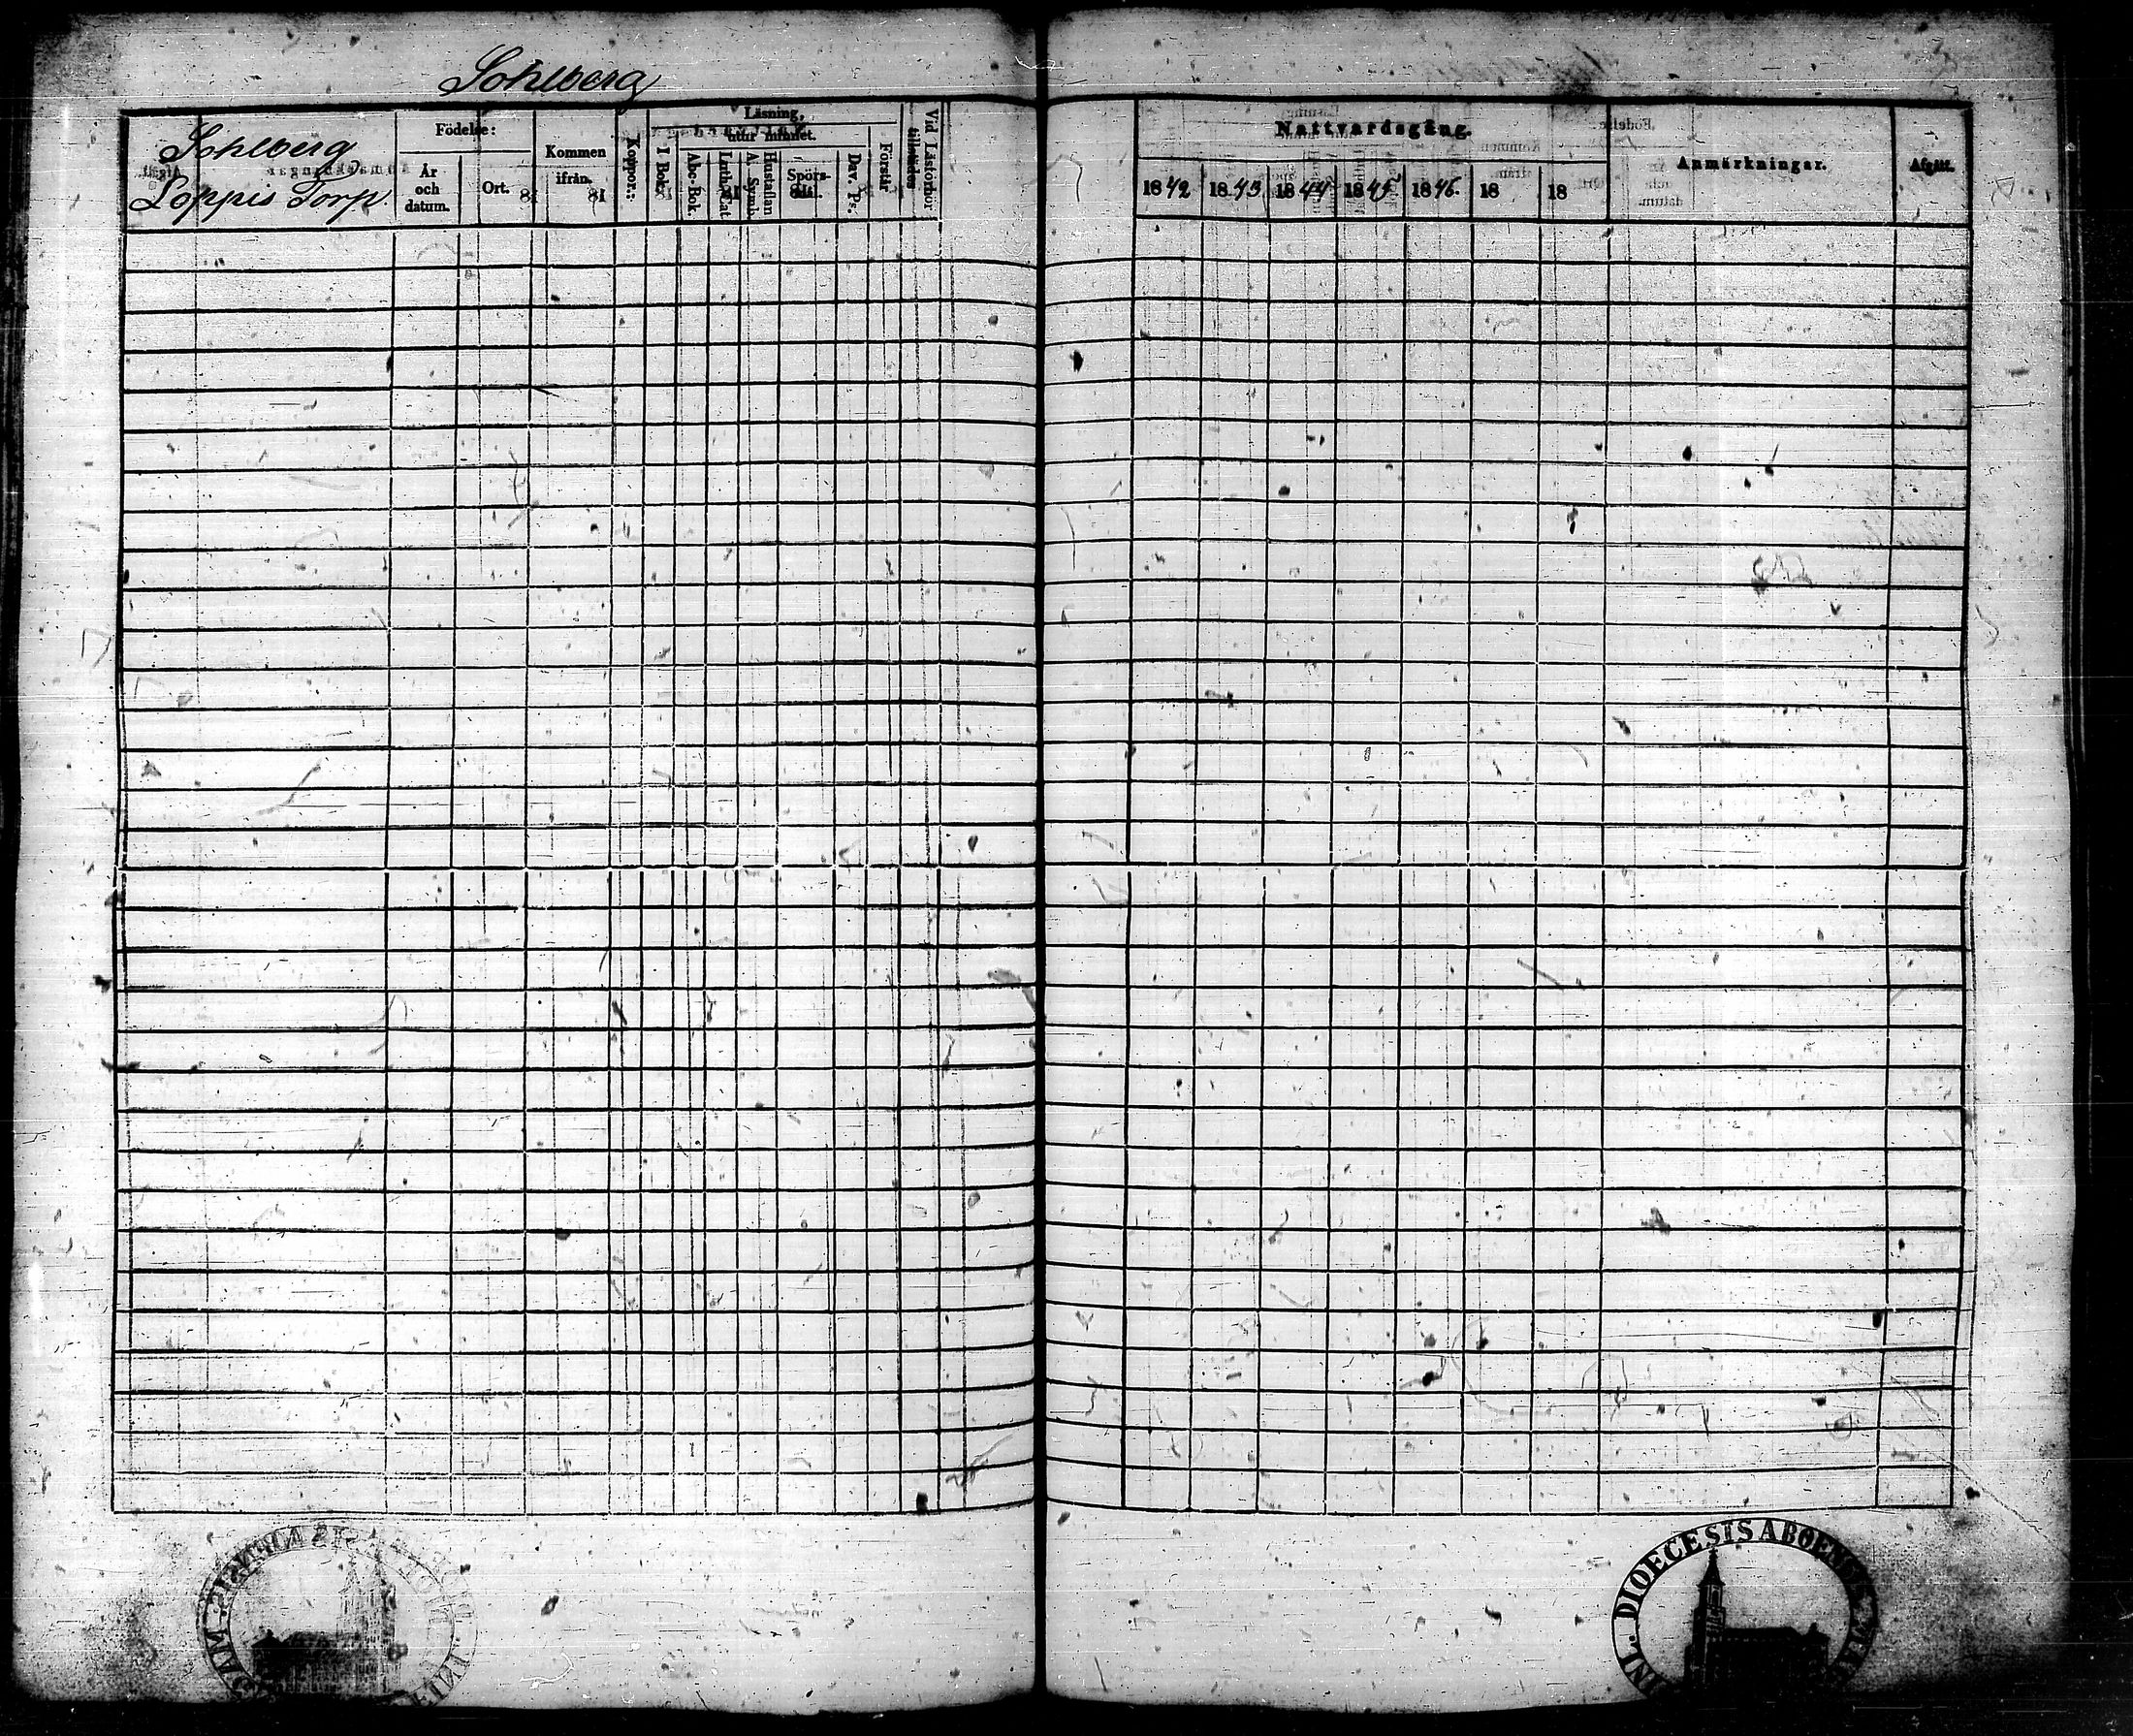 Sohlberg
Sohlberg
Loppis Torp
Födelse:
År och datum.
Ort.
Kommen ifrån.
Koppor.
Läsning,
I Bok.
utur minnet.
Abc-Bok.
Luth. Cat.
A. Symb.
Hustaflan
Spörs-mål.
Dav. Ps.
Förstår
Vid Läsförhör
Nattvardsgång.
1842
1843
1844
1845
1846.
18
18
Anmärkningar.
Afgått.
DIOECESIS ABOENSIS